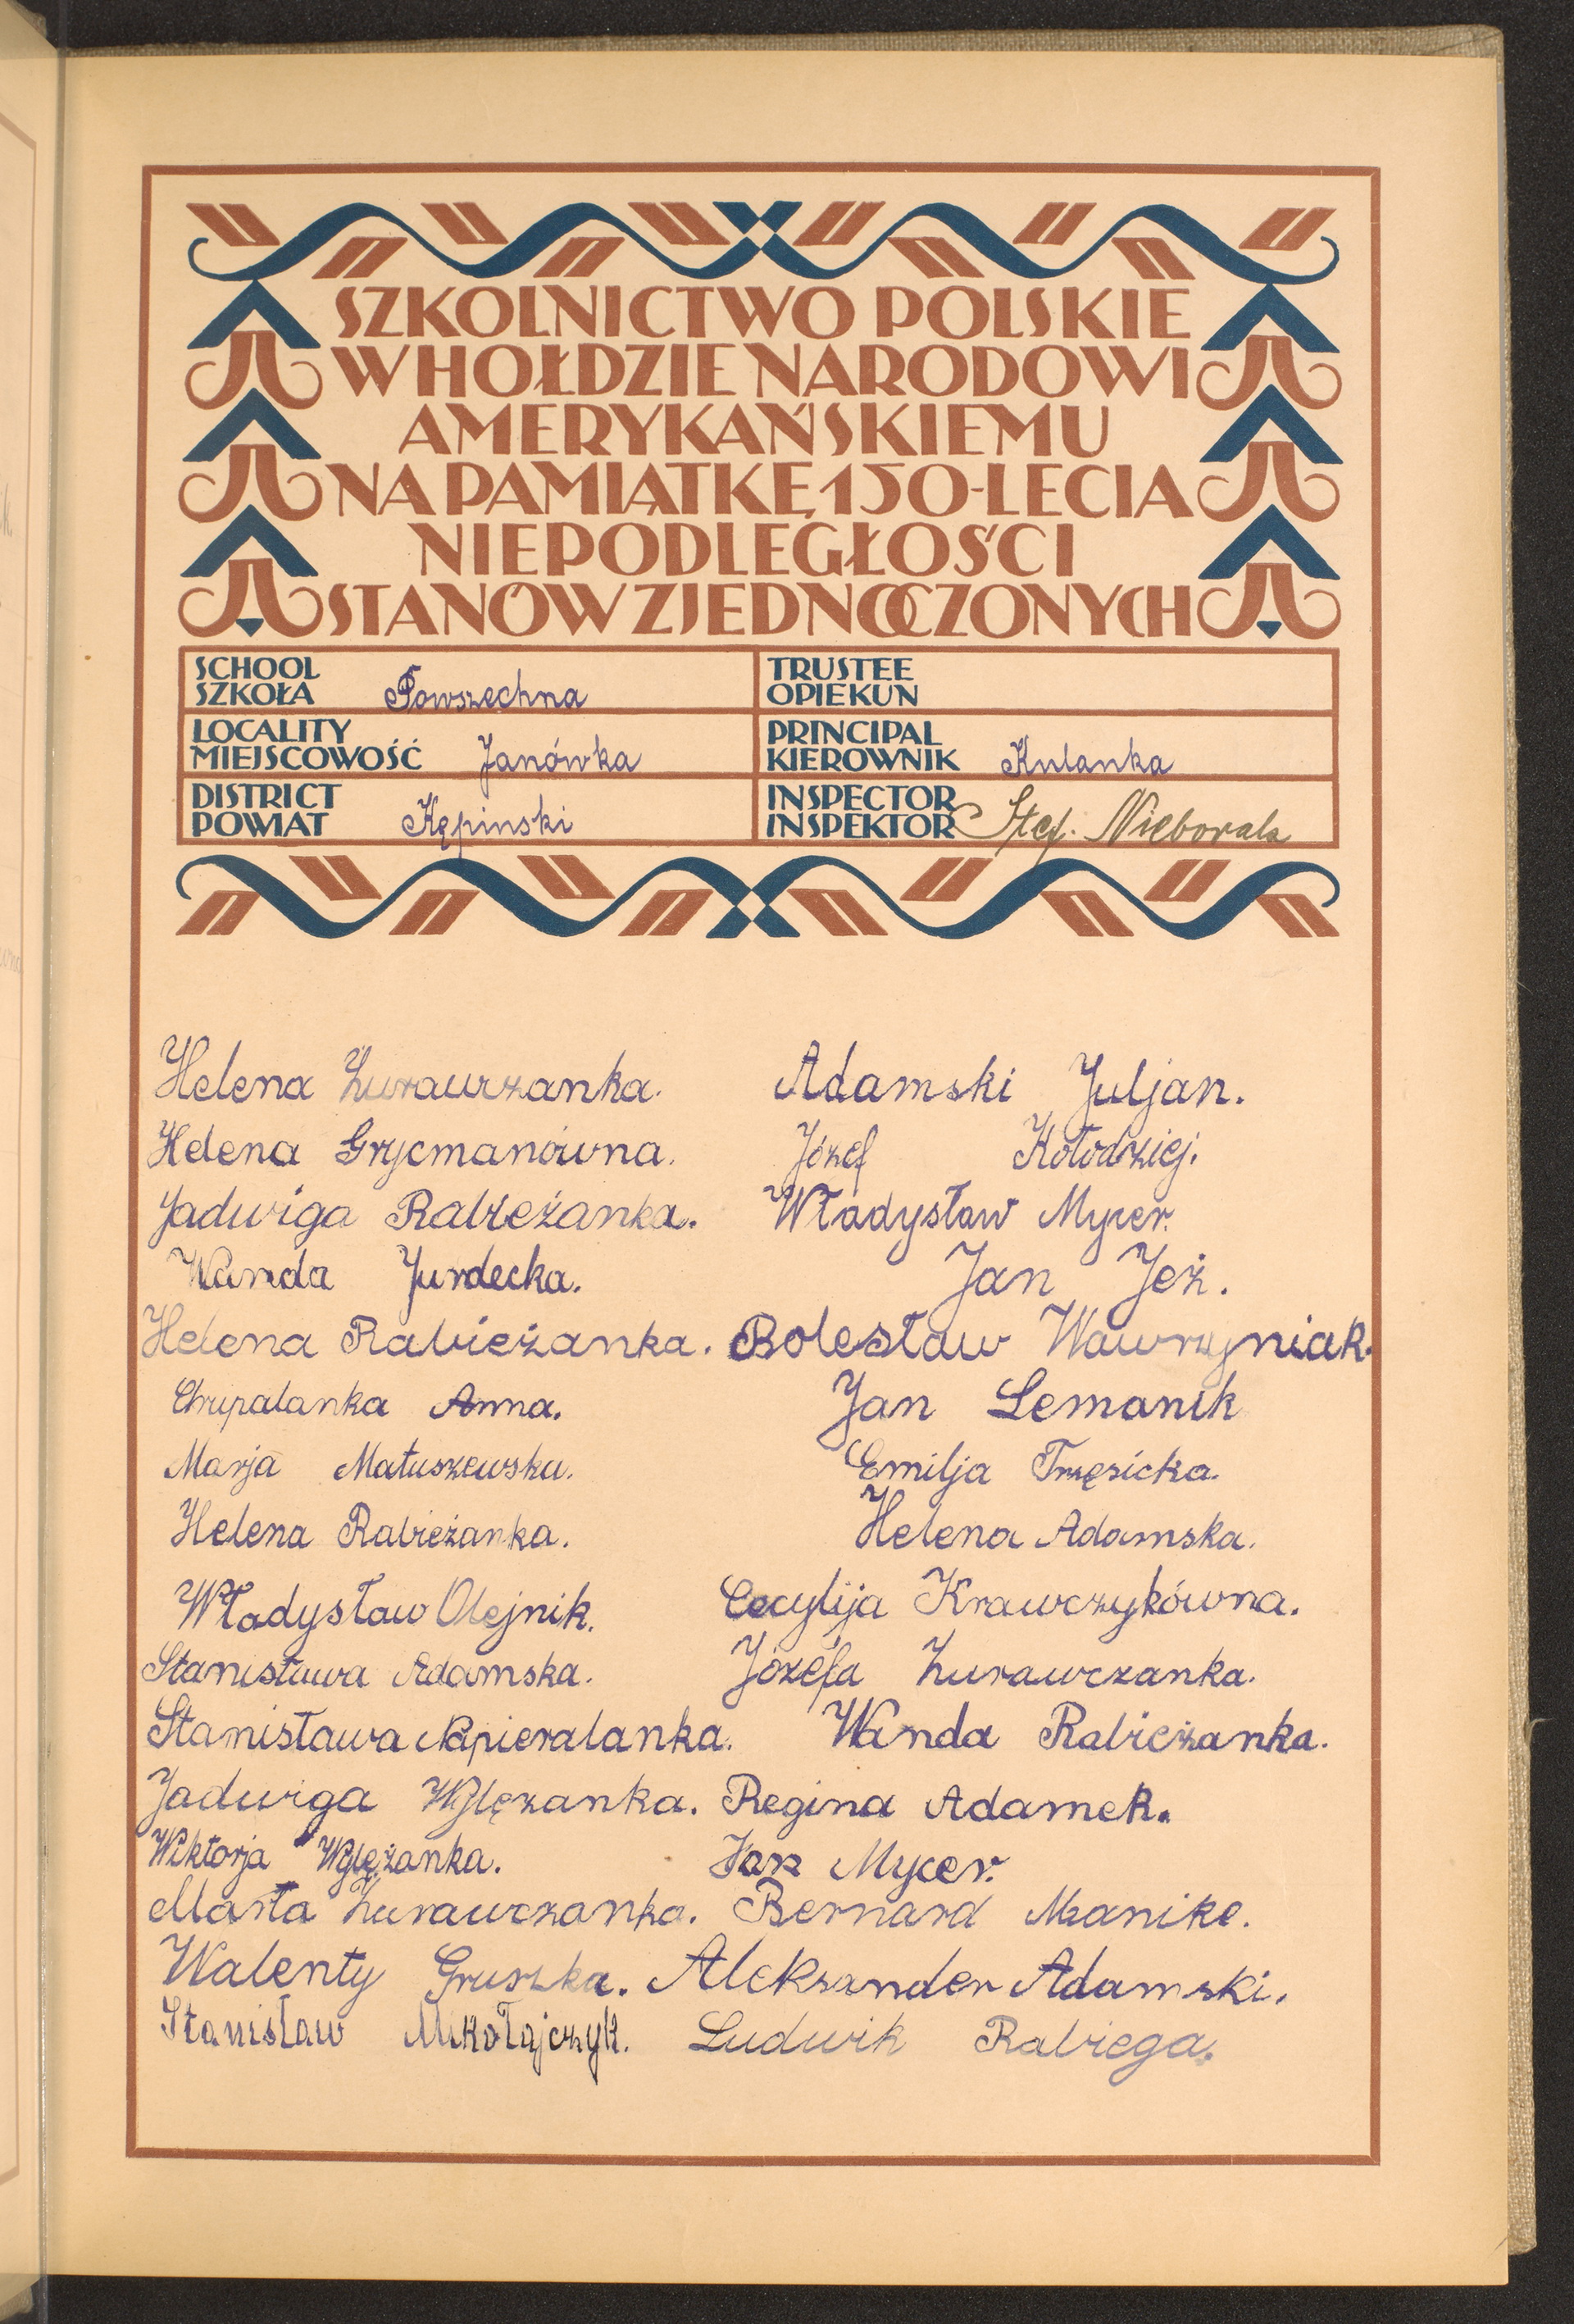 SZKOLNICTWO POLSKIE
W HOŁDZIE NARODOWI
AMERYKAŃSKIEMU
NA PAMIĄTKĘ 150-LECIA
NIEPODLEGŁOŚCI
STANÓW ZJEDNOCZONYCH
SCHOOL
SZKOŁA Powszechna
TRUSTEE
OPIEKUN
LOCALITY
MIEJSCOWOŚĆ Janówka
PRINCIPAL
KIEROWNIK Kulanka
DISTRICT
POWIAT Kępinski
INSPECTOR
INSPEKTOR Stef. Nieborak
Helena Żurawczanka.
Helena Grycmanówna.
Jadwiga Rabieżanka.
Wanda Jurdecka.
Helena Rabieżanka.
Chrupalanka Anna.
Marja Matuszewska.
Helena Rabieżanka.
Władysław Olejnik.
Stanisława Adamska.
Stanisława Napieralanka.
Jadwiga Wglęzanka.
Wiktorja Wglężanka.
Marta Żurawczanka.
Walenty Gruszka.
Stanisław Mikołajczyk.
Adamski Juljan.
Józef Kołodziej.
Władysław Mycer.
Jan Jeż.
Bolesław Wawrzyniak.
Jan Lemanik
Emilja Trzęsicka.
Helena Adamska.
Cecylija Krawczykówna.
Józefa Żurawczanka.
Wanda Rabieżanka.
Regina Adamek.
Jan Mycer.
Bernard Manike.
Aleksander Adamski.
Ludwik Rabiega.